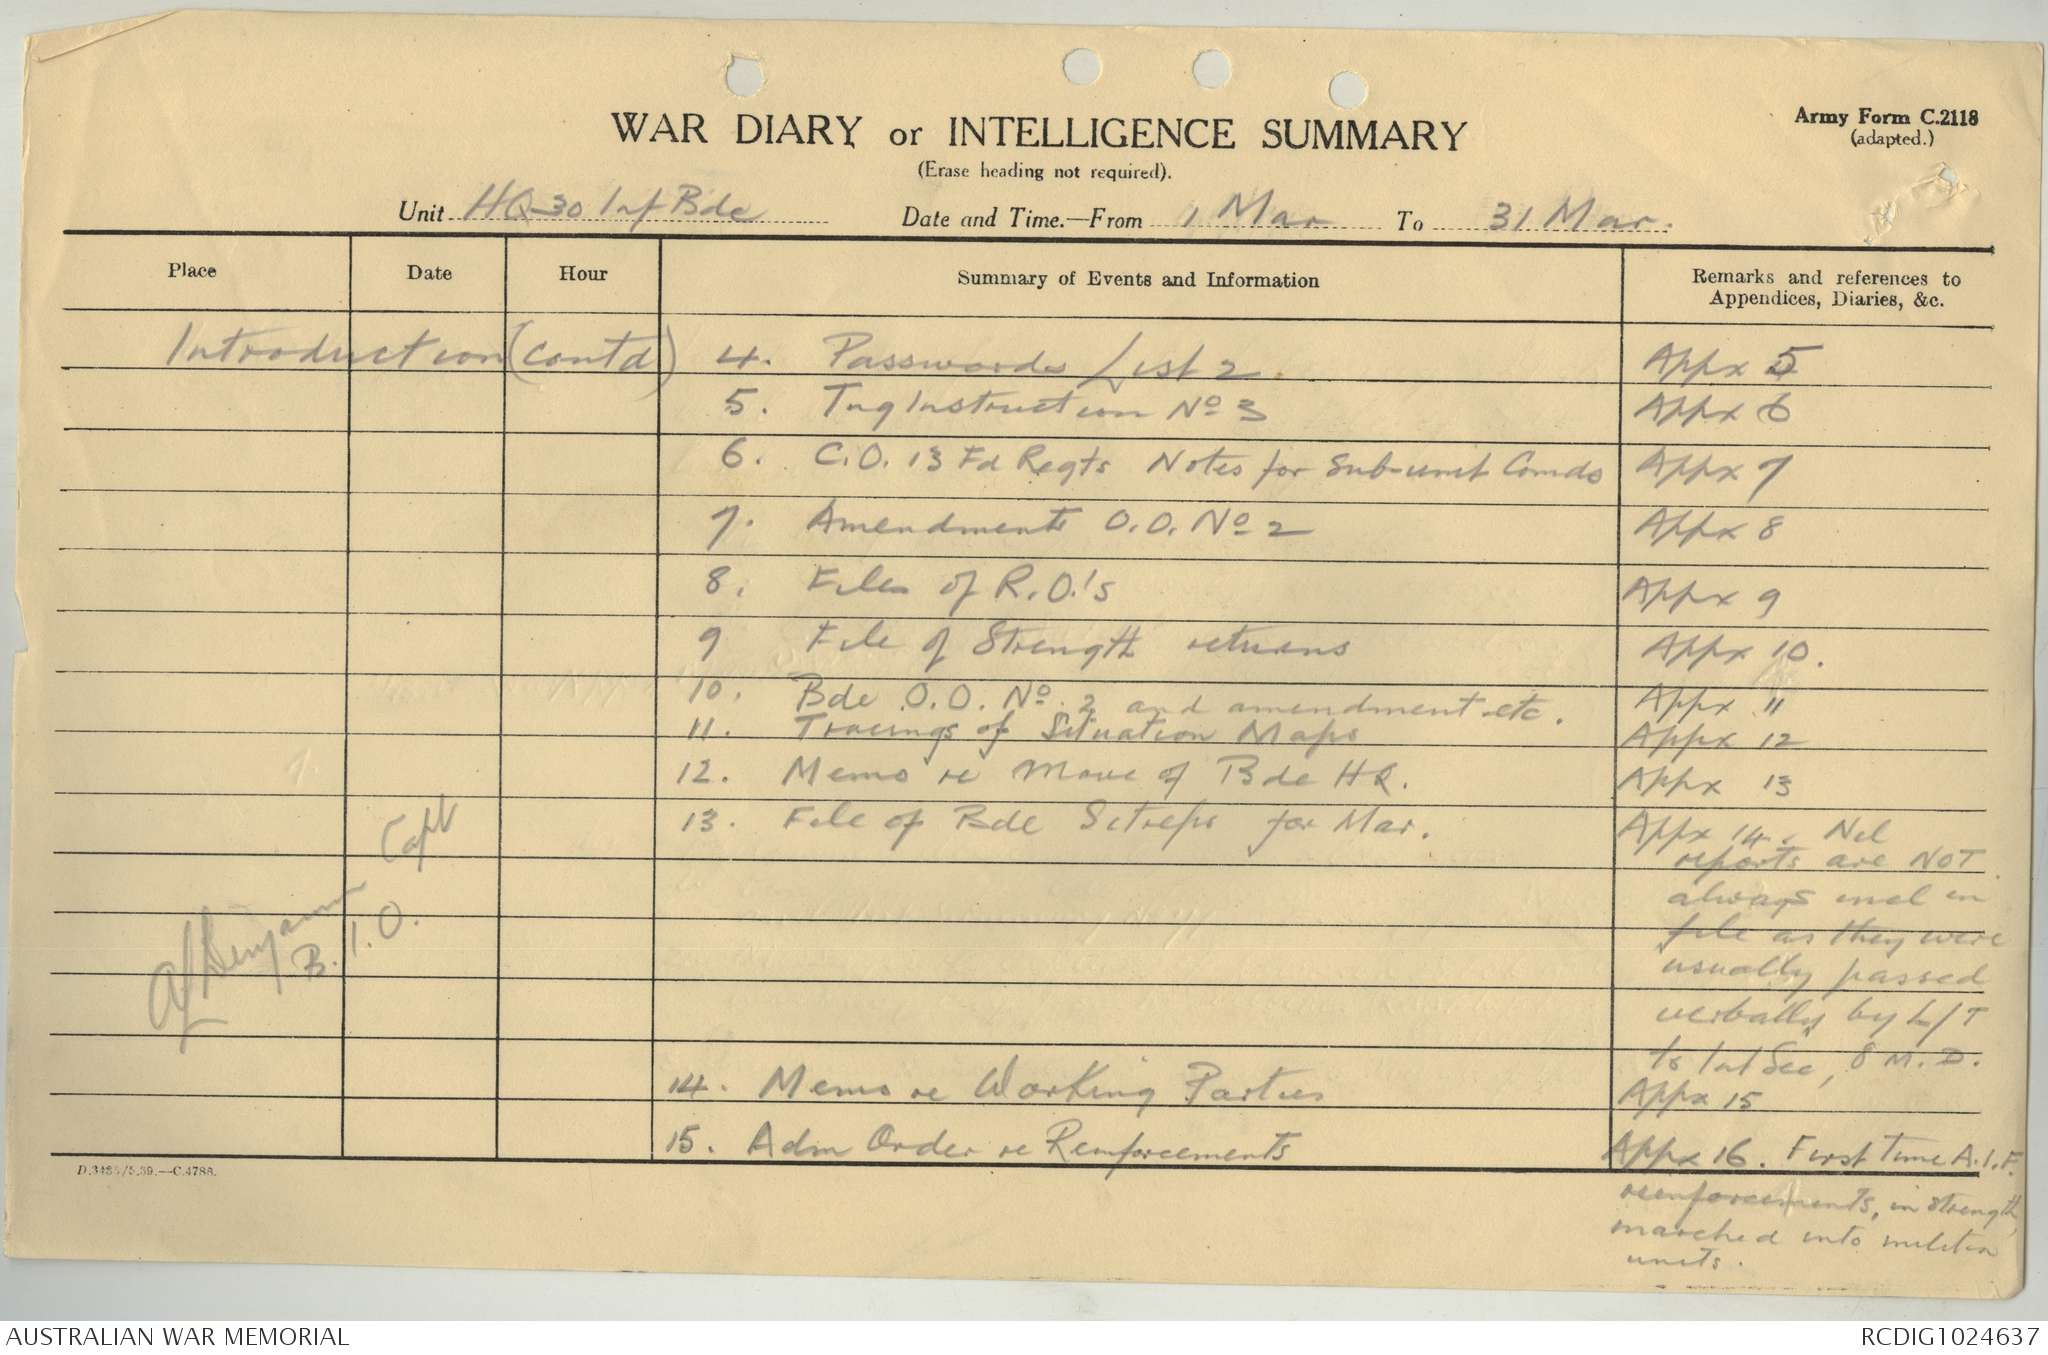 WAR DIARY or INTELLIGENCE SUMMARY
Army Form C.2118
(adapted.)
(Erase heading not required).
Unit HQ 30 Inf Bde Date and Time.—From 1 Mar To 31 Mar.
Place Date Hour Summary of Events and Information Remarks and references to
Appendices, Diaries, &c.
Introduction (contd) 4. Passwords List 2. Appx 5
5. Tng Instruction No 3 Appx 6
6. C.O. 13 Fd Regts Notes for Sub-unit Comds Appx 7
7. Amendments O.O. No 2 Appx 8
8. Files of R.O.'s Appx 9
9 File of Strength returns Appx 10.
10. Bde O.O. No. 2 and amendment etc. Appx 11
11. Tracings of Situation Maps Appx 12
12. Memo re Move of Bde HQ. Appx 13
13. File of Bde Sitreps for Mar. Appx 14. Nil
reports are NOT
always incl in
file as they were
usually passed
verbally by L/T
to Int Sec, 8 M.D.
Capt
Benjamin
B.I.O.
14. Memo re Working Parties Appx 15
15. Adm Order re Reinforcements Appx 16. First time A.I.F.
reinforcements, in strength,
marched into militia
units.
D.3485/5.39.—C.4788.
AUSTRALIAN WAR MEMORIAL
RCDIG1024637